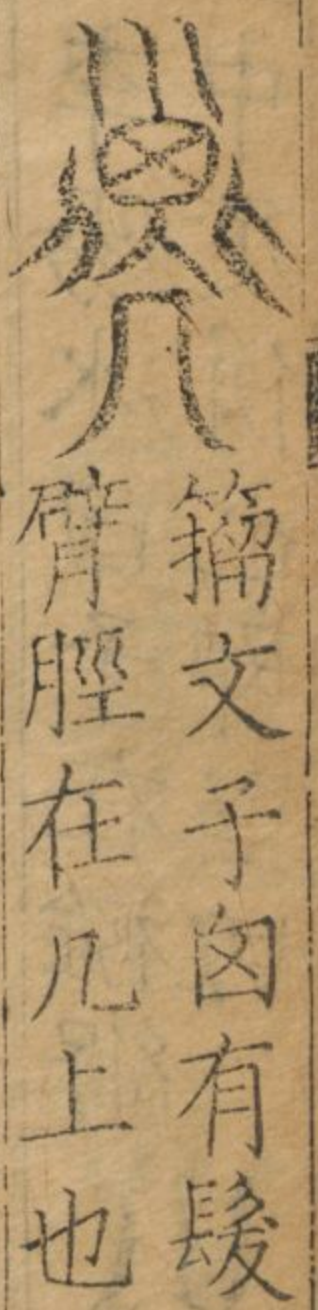 𢀇
籀文子囟有髮
臂脛在几上也